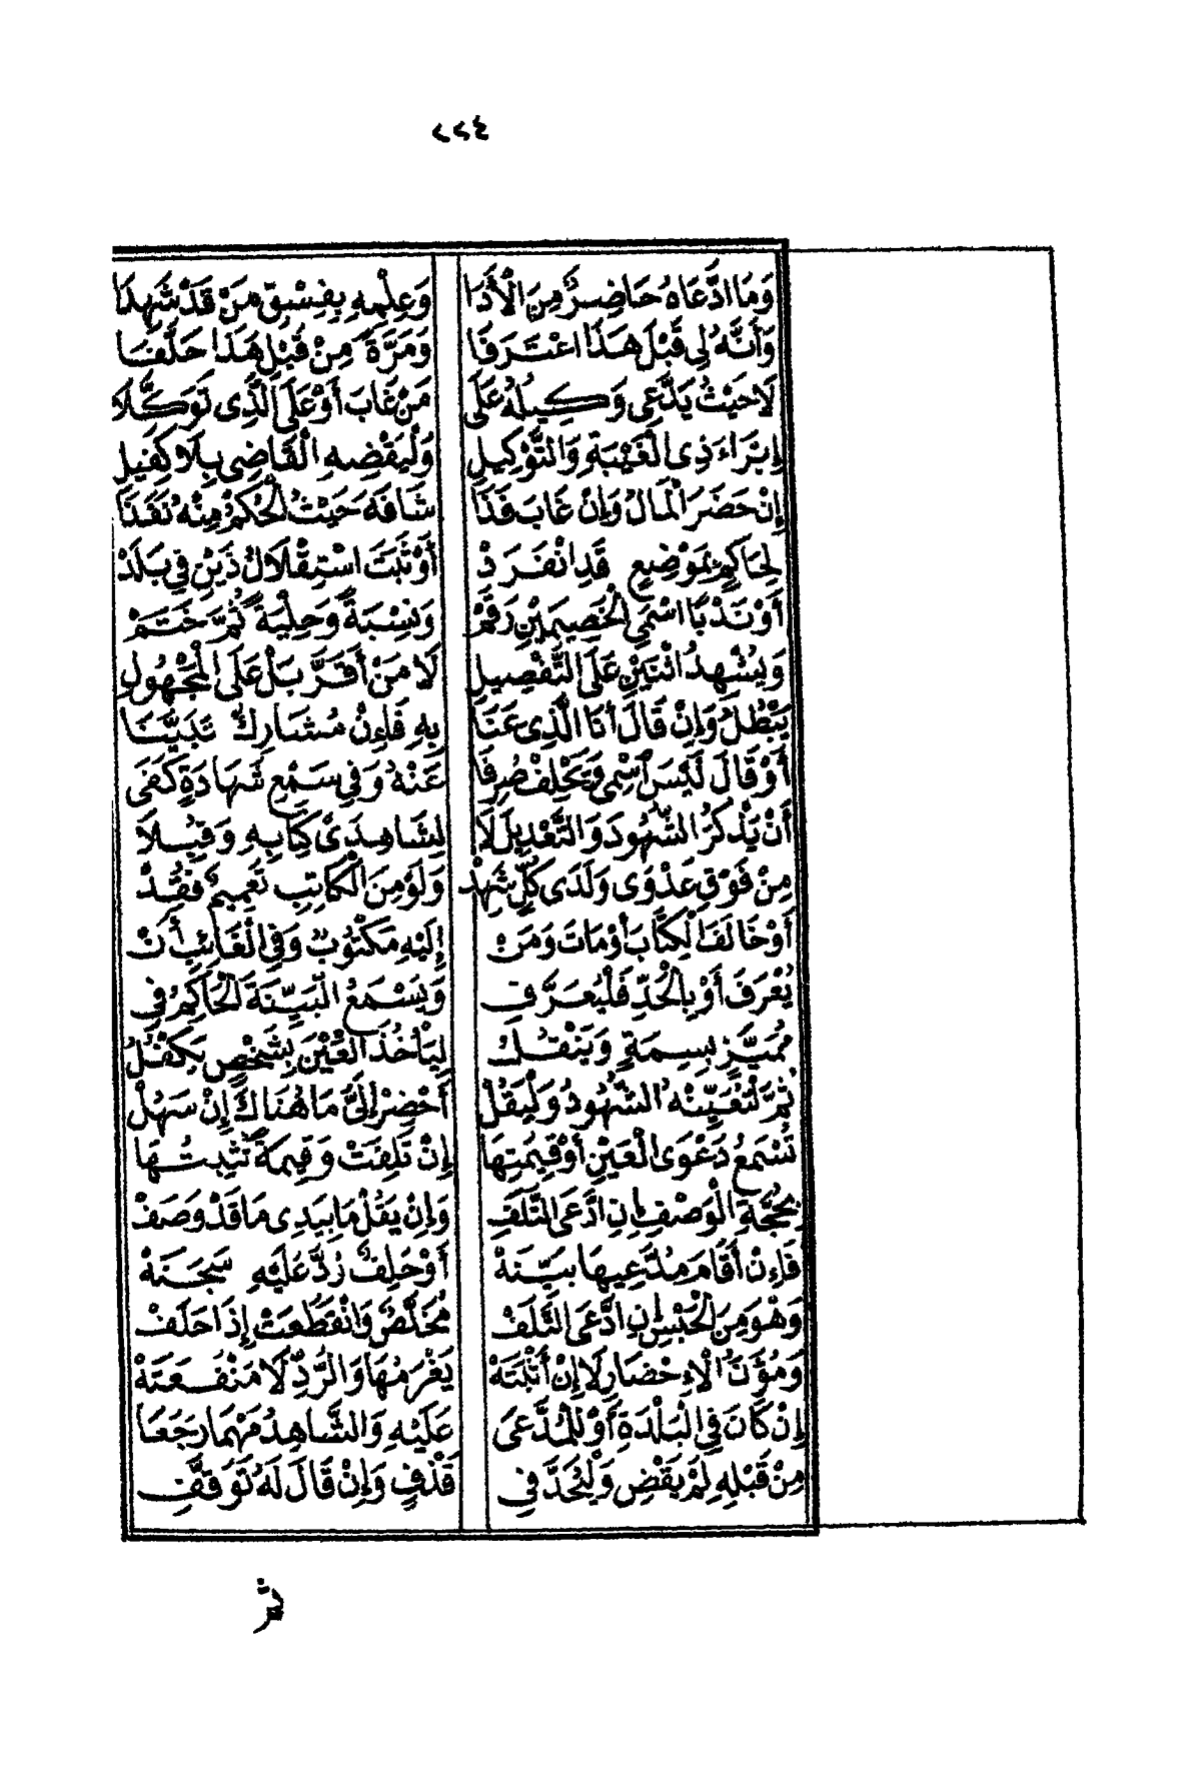 ٢٢٤
وَمَا ادَّعَاهُ حَاضِرٌ مِنَ الْأَدَا وَعِلْمِهِ بِفِسْقِ مَنْ قَدْ شَهِدَا
وَأَنَّهُ لِي قَبْلَ هَذَا اعْتَرَفَا وَمَرَّةً مِنْ قَبْلِ هَذَا حَلَّفَا
لَا حَيْثُ يَدَّعِي وَكِيلُهُ عَلَى مَنْ غَابَ أَوْ عَلَى الَّذِي تَوَكَّلَا
إِبْرَاءَ ذِي الْغَيْبَةِ وَالتَّوْكِيلِ وَلْيَقْضِهِ الْقَاضِي بِلَا كَفِيلِ
إِنْ حَضَرَ الْمَالُ وَإِنْ غَابَ فَذَا شَافَهَ حَيْثُ الْحُكْمُ مِنْهُ نَفَذَا
لِحَاكِمٍ بِمَوْضِعٍ قَدِ انْفَرَدْ أَوْ ثَبَتَ اسْتِقْلَالُ ذَيْنِ فِي بَلَدْ
أَوْ نَدْبًا اسْمَيِ الْخَصِيمَيْنِ رَقَمْ وَنِسْبَةً وَحِلْيَةً ثُمَّ خَتَمْ
وَيُشْهِدُ اثْنَيْنِ عَلَى التَّفْصِيلِ لَا مَنْ أَقَرَّ بَلْ عَلَى الْمَجْهُولِ
يَبْطُلُ وَإِنْ قَالَ أَنَا الَّذِي عَنَا بِهِ فَإِنْ مُشَارِكٌ تَبَيَّنَا
أَوْ قَالَ لَيْسَ اسْمِي وَيَحْلِفْ صُرِفَا عَنْهُ وَفِي سَمْعِ شَهَادَةٍ كَفَى
أَنْ يَذْكُرَ الشُّهُودَ وَالتَّعْدِيلَ لَا لِشَاهِدَيْ كِتَابِهِ وَقُبِلَا
مِنْ فَوْقِ عَدْوَى وَلَدَى كُلٍّ شَهِدْ وَلَوْ مِنَ الْكَاتِبِ تَعْمِيمٌ فُقِدْ
أَوْ خَالَفَا الْكِتَابَ أَوْ مَاتَ وَمَنْ إِلَيْهِ مَكْتُوبٌ وَفِي الْغَائِبِ أَنْ
يُعْرَفَ أَوْ بِالْحَدِّ فَلْيُعَرَّفِ وَيَسْمَعُ الْبَيِّنَةَ الْحَاكِمُ فِي
مُمَيَّزٍ بِسِمَةٍ وَيَنْقُلُ لِيَأْخُذَ الْعَيْنَ بِشَخْصٍ يَكْفُلُ
ثُمَّ لْتُعَيِّنْهُ الشُّهُودُ وَلْيَقُلْ أَحْضِرْ إِلَيَّ مَا هُنَاكَ إِنْ سَهُلْ
تُسْمَعُ دَعْوَى الْعَيْنِ أَوْ قِيمَتِهَا إِنْ تَلِفَتْ وَقِيمَةً تُثْبِتُهَا
بِحُجَّةِ الْوَصْفِ بِإِنِ ادَّعَى التَّلَفِ وَإِنْ يَقُلْ مَا بِيَدِي مَا قَدْ وَصَفْ
فَإِنْ أَقَامَ مُدَّعِيهَا بَيِّنَهْ أَوْ حَلِفٌ رُدَّ عَلَيْهِ سَجَنَهْ
وَهْوَ مِنَ الْحَبْسِ إِنِ ادَّعَى التَّلَفْ مُخَلَّصٌ وَانْقَطَعَتْ إِذَا حَلَفْ
وَمُؤَنُ الْإِحْضَارِ لَا إِنْ أَثْبَتَهْ يَغْرَمُهَا وَالرَّدِّ لَا مَنْفَعَتَهْ
إِنْ كَانَ فِي الْبَلْدَةِ أَوْ لِلْمُدَّعَى عَلَيْهِ وَالشَّاهِدُ مَهْمَا رَجَعَا
مِنْ قَبْلِهِ لَمْ يَقْضِ وَلْيُحَدَّ فِي قَذْفٍ وَإِنْ قَالَ لَهُ تَوَقَّفِ